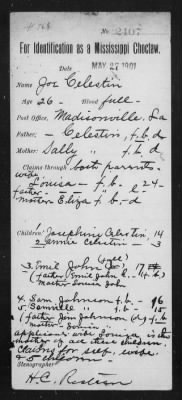 No. 2407
For Identification as a Mississippi Choctaw.
Date MAY 27 1901
Name Joe Celestin
Age 26 - Blood full -
Post Office, Madisonville, La
Father, - Celestin, f. b. d
Mother: Sally " f. b. d
Claims through both parents.
wife
Louisa - f. b. 24 -
father -
mother Eliza f. b. d
Children: Josephine Celestin, 14
2 Jennie Celestin - 3
3. Emil John 17
(father Emil John
mother Louisa John
4. Sam Johnson f. b. - 16
5. " f. b. - 15
(father Jim Johnson f. b.
mother Louisa
applicant's wife Louisa is the
mother of all these children
claims for self, wife
& 5 children
Stenographer
H.C.